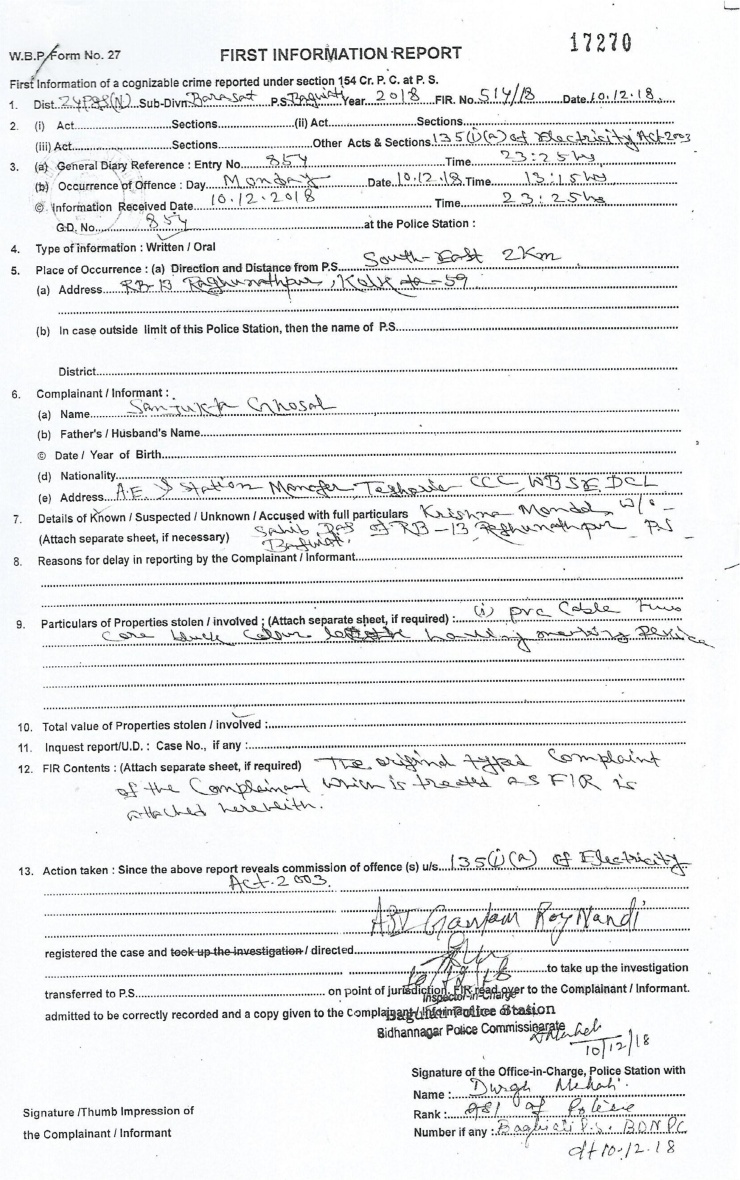 17270
W.B.P. Form No. 27 FIRST INFORMATION REPORT
First Information of a cognizable crime reported under section 154 Cr. P. C. at P. S.
1. Dist. 24 PGS(N) Sub-Divn. Barasat P.S. Baguiati Year 2018 FIR. No. 514/18 Date 10.12.18.
2. (i) Act Sections (ii) Act Sections
(iii) Act Sections Other Acts & Sections 135(1)(a) of Electricity Act-2003
3. (a) General Diary Reference : Entry No. 854 Time 23:25 hrs
(b) Occurrence of Offence : Day Monday Date 10.12.18 Time 13:15 hrs
© Information Received Date 10.12.2018 Time 23:25 hrs
G.D. No. 854 at the Police Station :
4. Type of information : Written / Oral
5. Place of Occurrence : (a) Direction and Distance from P.S. South-East 2Km
(a) Address RB-13 Raghunathpur, Kolkata-59
(b) In case outside limit of this Police Station, then the name of P.S.
District
6. Complainant / Informant :
(a) Name Sanjukta Ghosal
(b) Father's / Husband's Name
© Date / Year of Birth
(d) Nationality
(e) Address A.E. & Station Manager Teghoria CCC, WBSEDCL
7. Details of Known / Suspected / Unknown / Accused with full particulars Krishna Mondal, W/o-
(Attach separate sheet, if necessary) Sahib Das of RB-13 Raghunathpur PS
Baguiati.
8. Reasons for delay in reporting by the Complainant / Informant
9. Particulars of Properties stolen / involved : (Attach separate sheet, if required) : (i) pvc Cable Two
Core black Colour having marking
10. Total value of Properties stolen / involved :
11. Inquest report/U.D. : Case No., if any :
12. FIR Contents : (Attach separate sheet, if required) The original typed Complaint
of the Complainant which is treated as FIR is
attached herewith.
13. Action taken : Since the above report reveals commission of offence (s) u/s. 135(1)(a) of Electricity
Act-2003.
ASI Goutam Roy Nandi
registered the case and took up the investigation / directed
10/12/18 to take up the investigation
transferred to P.S. on point of jurisdiction. FIR read over to the Complainant / Informant.
Inspector-in-Charge
admitted to be correctly recorded and a copy given to the Complainant / Informant free of cost.
Baguiati Police Station
Bidhannagar Police Commissinarate
10/12/18
Signature of the Office-in-Charge, Police Station with
Name : Durga Mahali.
Signature /Thumb Impression of Rank : ASI of Police
the Complainant / Informant Number if any : Baguiati P.S. BDNPC
dt 10.12.18